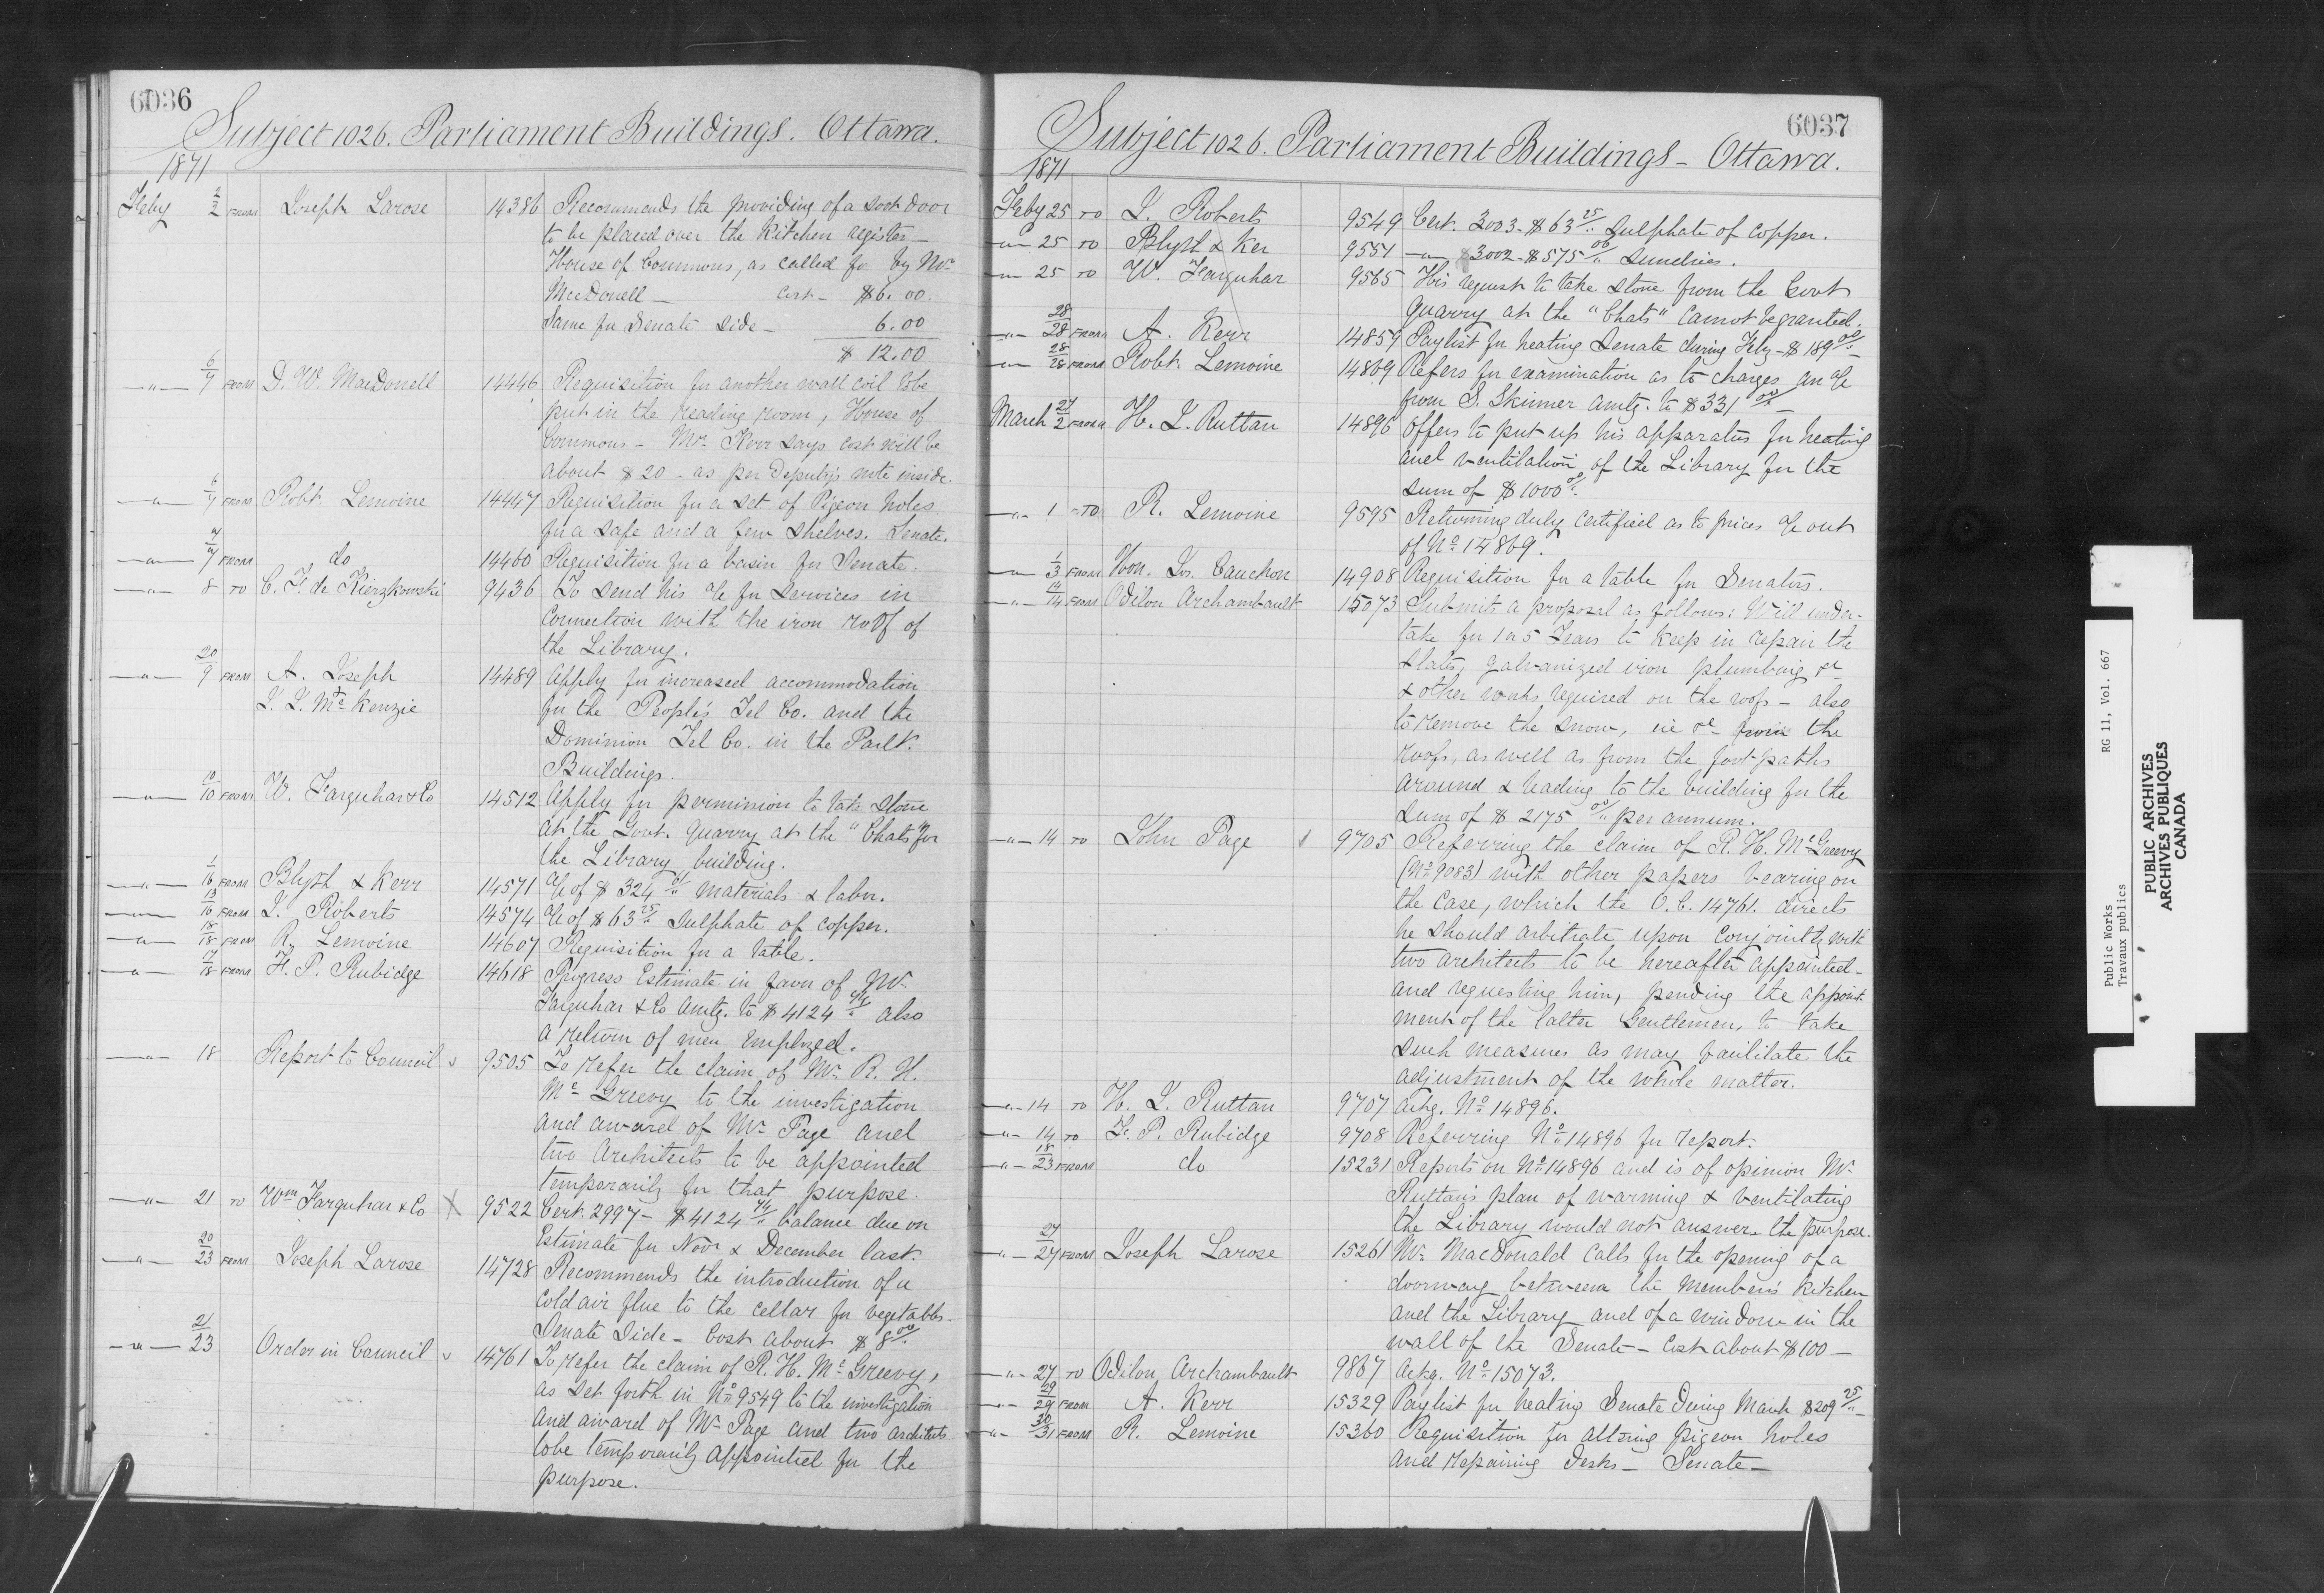 6036
Subject 1026. Parliament Buildings. Ottawa.
1871
Feby 2/2 FROM Joseph Larose 14386 Recommends the providing of a door
to be placed over the Kitchen register -
House of Commons, as called for by Mr
MacDonell - Cost - $6.00.
Same for Senate side - 6.00
$ 12.00
-"- 6/7 FROM D. W. MacDonell 14446 Requisition for another wall coil to be
put in the reading room, House of
Commons - Mr. Kerr says cost will be
about $20 - as per Deputy's note inside.
-"- 6/7 FROM Robt. Lemoine 14447 Requisition for a set of Pigeon holes
for a safe and a few shelves. Senate.
-"- 7/7 FROM do 14460 Requisition for a basin for Senate.
-"- 8 TO C. F. de Kierzkowski 9436 To send his a/c for services in
Connection with the iron roof of
the Library.
-"- 20/9 FROM A. Joseph 14489 Apply for increased accommodation
McKenzie for the People's Tel Co. and the
Dominion Tel Co. in the Parlt.
Buildings.
-"- 10/10 FROM W. Farquhar & Co 14512 Apply for permission to take stone
at the Govt. quarry at the "Chats" for
the Library building.
-"- 1/16 FROM Blyth & Kerr 14571 a/c of $ 324 01/" materials & labor.
-"- 13/16 FROM J. Roberts 14574 a/c of $ 63 25/" Sulphate of copper.
-"- 18/18 FROM R. Lemoine 14607 Requisition for a table.
-"- 17/18 FROM F. P. Rubidge 14618 Progress Estimate in favor of Mr.
Farquhar & Co amtg. to $ 4124 74/" also
a return of men employed.
-"- 18 Report to Council v 9505 To refer the claim of Mr. R. H.
McGreevy to the investigation
and award of Mr. Page and
two Architects to be appointed
temporarily for that purpose.
-"- 21 TO Wm Farquhar & Co X 9522 Cert. 2997 - $4124 74/" balance due on
Estimate for Novr & December last.
-"- 20/23 FROM Joseph Larose 14728 Recommends the introduction of a
cold air flue to the cellar for vegetables -
Senate Side - Cost about $ 8 00/"
-"- 21/23 Order in Council v 14761 To refer the claim of R. H. McGreevy,
as set forth in No 9549 to the investigation
and award of Mr. Page and two architects
to be temporarily appointed for the
purpose.
6037
Subject 1026. Parliament Buildings - Ottawa.
1871
Feby 25 TO J. Roberts 9549 Cert. 3003 - $ 63 25/" Sulphate of copper.
-"- 25 TO Blyth & Ker 9551 -"- 3002 - $575 00/" Sundries.
-"- 25 TO W. Farquhar 9565 His request to take stone from the Govt
quarry at the "Chats" cannot be granted.
-"- 28/28 FROM A. Kerr 14859 Paylist for heating Senate during Feby - $ 189 00/"
-"- 28/28 FROM Robt. Lemoine 14869 Refers for examination as to charges an a/c
from S. Skinner amtg. to $ 331 00/" -
March 27/2 FROM H. J. Ruttan 14896 Offers to put up his apparatus for heating
and ventilation of the Library for the
sum of $ 1000 00/"
-"- 1 TO R. Lemoine 9595 Returning duly certified as to prices a/c out
of No 14869.
-"- 1/3 FROM Hon. Jos. Cauchon 14908 Requisition for a table for Senators.
-"- 14/14 FROM Odilon Archambault 15073 Submits a proposal as follows: Will under-
take for 1 or 5 Years to keep in repair the
slates, galvanized iron plumbing &c
& other works required on the roofs - also
to remove the snow, ice &c from the
roofs, as well as from the foot-paths
around & leading to the building for the
sum of $ 2175 00/" per annum.
-"- 14 TO John Page v 9705 Referring the claim of R. H. McGreevy
(No 9083) with other papers bearing on
the case, which the O.C. 14761. directs
he should arbitrate upon conjointly with
two architects to be hereafter appointed -
and requesting him, pending the appoint-
ment of the latter Gentlemen, to take
such measures as may facilitate the
adjustment of the whole matter.
-"- 14 TO H. J. Ruttan 9707 Ackg. No 14896.
-"- 14 TO F. P. Rubidge 9708 Referring No 14896 for report.
-"- 18/23 FROM do 15231 Reports on No 14896 and is of opinion Mr.
Ruttan's plan of warming & ventilating
the Library would not answer the purpose.
-"- 27/27 FROM Joseph Larose 15261 Mr. MacDonald calls for the opening of a
doorway between the Member's kitchen
and the Library and of a window in the
wall of the Senate - Cost about $100 -
-"- 27 TO Odilon Archambault 9867 Ackg. No 15073.
-"- 29/29 FROM A. Kerr 15329 Paylist for heating Senate During March $209 25/" -
-"- 30/31 FROM R. Lemoine 15360 Requisition for altering pigeon holes
and repairing Desks - Senate -
Public Works RG 11, Vol. 667
Travaux publics
PUBLIC ARCHIVES
ARCHIVES PUBLIQUES
CANADA